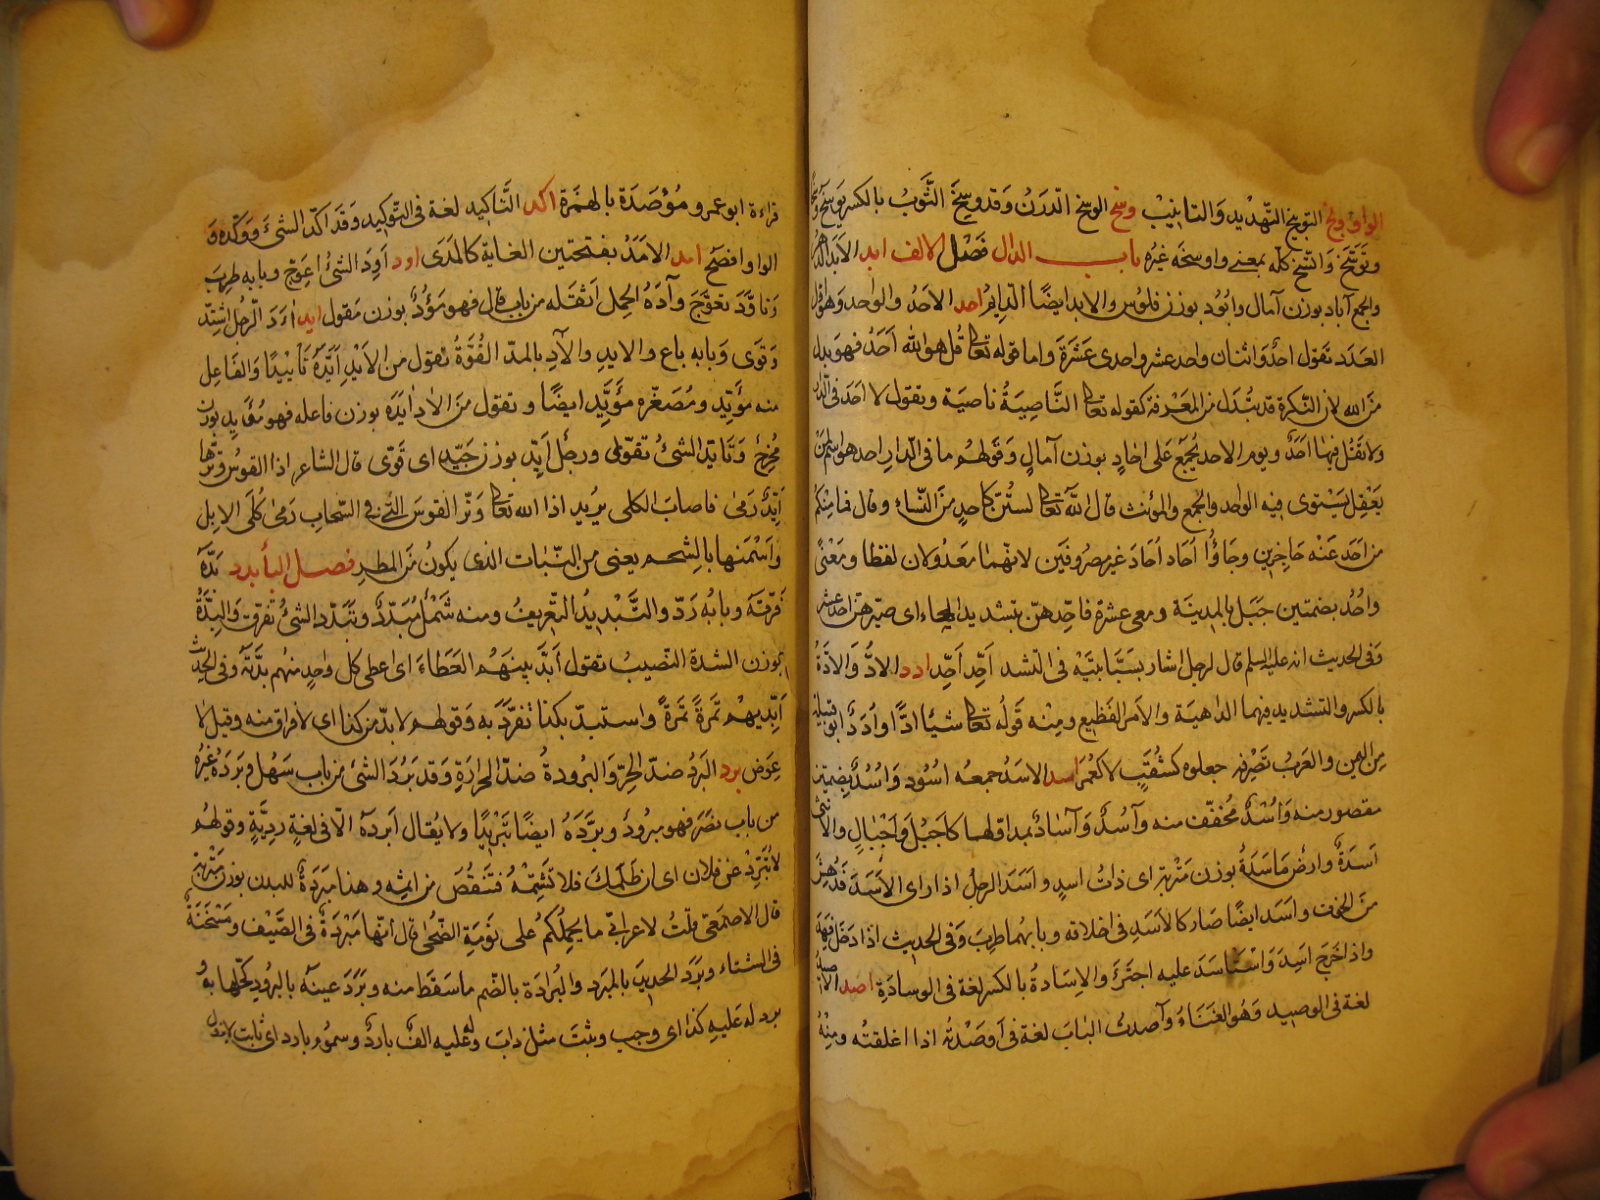 الواو وبخ التوبيخ التهديد والتانيب وسخ الوسخ الدرن وقد وسخ الثوب بالكسر يوسخ
وتوسخ واتسخ كله بمعنى واوسخه غيره باب الدال فصل الالف ابد الابد الدهر
والجمع آباد بوزن آمال وابود بوزن فلوس والابد ايضا الدايم احد الاحد والواحد وهو اول
العدد تقول احد واثنان واحد عشر واحدى عشرة واما قوله تعالى قل هو الله احد فهو بدل
من الله لان النكرة قد تبدل من المعرفة كقوله تعالى الناصية ناصية وتقول لا احد فى الدار
ولا تقل فيها احد ويوم الاحد يجمع على احاد بوزن آمال وقولهم ما فى الدار احد هو اسم لمن
يعقل يستوى فيه الواحد والجمع والمؤنث قال الله تعالى لستن كاحد من النساء وقال فما منكم
من احد عنه حاجزين وجاؤا آحاد آحاد غير مصروفين لانهما معدولان لفظا ومعنى
واحد بضمتين جبل بالمدينة ومعى عشرة فاحدهن بتشديد الحاء اى صيرهن احد عشر
وفى الحديث انه عليه السلم قال لرجل اشار بسبابتيه فى التشهد احد احد ادد الاد والادة
بالكسر والتشديد فيهما الداهية والامر الفظيع ومنه قوله تعالى شيئا ادا وادد ابو قبيلة
من اليمن والعرب تصرفه جعلوه كثقب لا كعمر اسد الاسد جمعه اسود واسد بضمتين
مقصور منه واسد مخفف منه وآسد وآساد بمد اولهما كاجبل واجبال والانثى
اسدة وارض ماسدة بوزن متربة اى ذات اسد واسد الرجل اذا راى الاسد فدهش
من الخوف واسد ايضا صار كالاسد فى اخلاقه وبابهما طرب وفى الحديث اذا دخل فهد
واذا خرج اسد واستاسد عليه اجترئ والاسادة بالكسر لغة فى الوسادة اصد الاصيد
لغة فى الوصيد وهو الفناء وآصدت الباب لغة فى اوصدته اذا اغلقته ومنه
قراءة ابو عمرو مؤصدة بالهمزة اكد التاكيد لغة فى التوكيد وقد اكد الشئ ووكده و
الواو افصح امد الامد بفتحتين الغاية كالمدى اود اود الشئ اعوج وبابه طرب
وتاود تعوج وآده الحمل اثقله من باب قال فهو مؤود بوزن مقول ايد اءد الرجل اشتد
وقوى وبابه باع والايد والآد بالمد القوة تقول من الايد ايده تأييدا والفاعل
منه مؤيد ومصغره مؤييد ايضا وتقول من الاد ايده بوزن فاعله فهو مؤيد بوزن
مخرج وتايد الشئ تقوى ورجل ايد بوزن جيد اى قوى قال الشاعر اذا القوس وترها
ايد رمى فاصاب الكلى يريد اذا الله تعالى وتر القوس التى فى السحاب رمى كلى الابل
واسمنها بالشحم يعنى من النبات الذى يكون من المطر فصل البا بدد بده
فرقه وبابه رد والتبديد التفريق ومنه شمل مبدد وتبدد الشئ تفرق والبدة
بوزن الشدة النصيب تقول ابد بينهم العطاء اى اعطى كل واحد منهم بدته وفى الحديث
ابديهم تمرة تمرة واستبد بكذا تفرد به وقولهم لابد من كذا اى لا فراق منه وقيل لا
عوض برد البرد ضد الحر والبرودة ضد الحرارة وقد برد الشئ من باب سهل وبرده غيره
من باب نصر فهو مبرود وبرده ايضا تبريدا ولا يقال ابرده الا فى لغية ردية وقولهم
لا تبرد عن فلان اى ان ظلمك فلا تشتمه فتنقص من اثمه وهذا مبردة للبدن بوزن متربة
قال الاصمعى قلت لاعرابى ما يحملكم على نومة الضحى قال انها مبردة فى الصيف ومسخنة
فى الشتاء وبرد الحديد بالمبرد والبرادة بالضم ما سقط منه وبرد عينه بالبرود كحلها به و
برد له عليه كذا اى وجب وثبت مثل ذاب وله عليه الف بارد وسموم بارد اى ثابت لا يزول